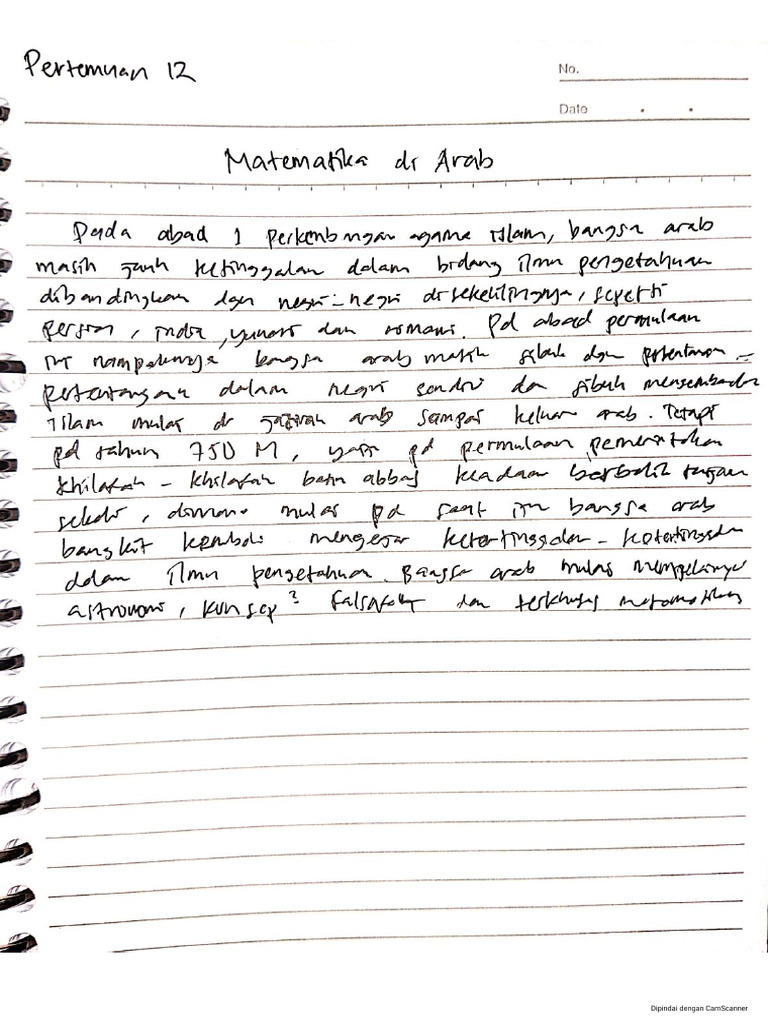 Pertemuan 12
No.
Date
Matematika di Arab
Pada abad 1 perkembangan agama islam, bangsa arab
masih jauh ketinggalan dalam bidang ilmu pengetahuan
dibandingkan dgn negri-negri disekelilingnya, seperti
persia, india, yunani dan romawi. Pd abad permulaan
ini nampaknya bangsa arab masih sibuk dgn pertentangan-
pertentangan dalam negri sendiri dan sibuk menyembarkan
islam mulai dr jazirah arab sampai keluar arab. Tetapi
pd tahun 750 M, yaitu pd permulaan pemerintahan
khilafah-khilafah bani abbas keadaan berbalik tujuan
sekali, dimana mulai pd saat itu bangsa arab
bangkit kembali mengejar ketertinggalan-ketertinggalan
dalam ilmu pengetahuan. Bangsa arab mulai mempelajari
astronomi, konsep² falsafah dan terkhusus matematikanya
Dipindai dengan CamScanner